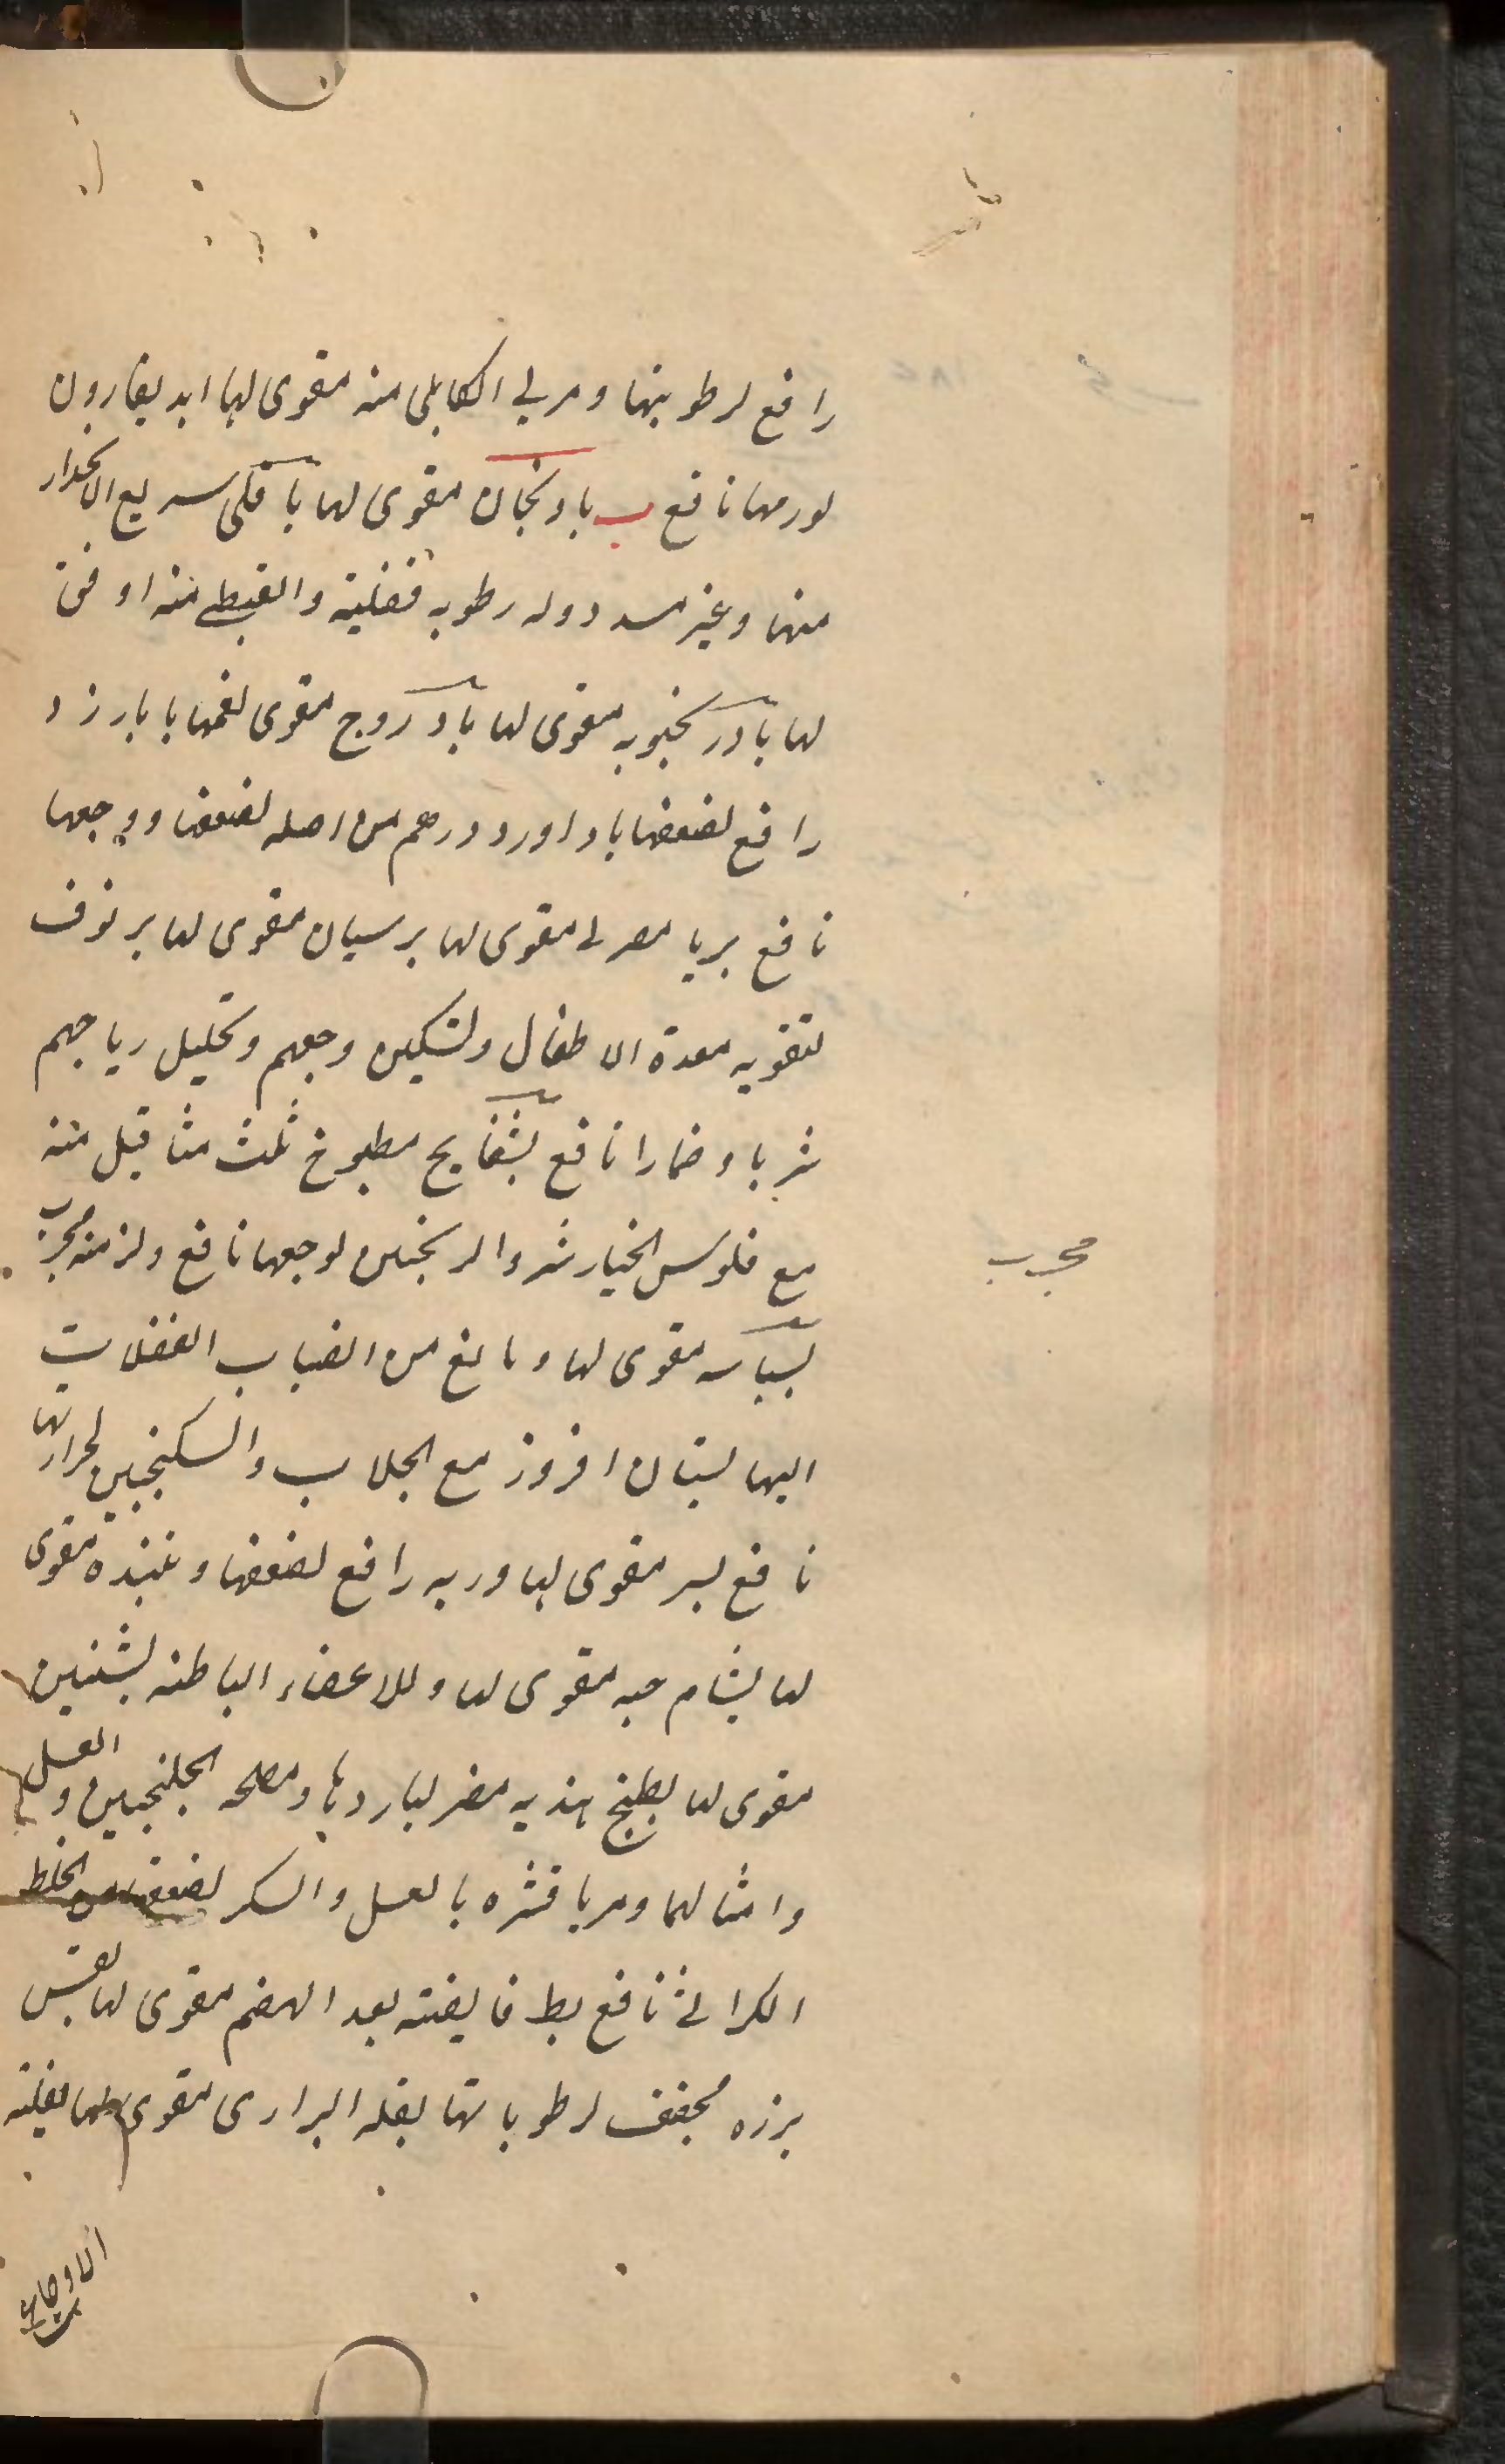 رافع لرطوبتها ومربى الكابلى منه مقوى لها ابدیقارون
لورمها نافع ب بادنجان مقوى لها باقلى سريع الانحدار
منها وغير مسدد وله رطوبه فضلية والقبطى منه اوفق
لها بادرنجبويه مقوى لها بادروج مقوى لفمها بابارزد
رافع لضعفها باداورد درهم من اصله لضعفها ووجعها
نافع بربا مصرى مقوى لها برسيان مقوى لها برنوف
لتقويه معدة الاطفال ولتسكين وجعهم وتحليل رياحهم
شربا وضمادا نافع بسفايج مطبوخ ثلث مثاقيل منه
مع فلوس الخيارشنبر والزنجبيل لوجعها نافع ولزمنه مجرب
مجرب
بسباسه مقوى لها ومانع من انصباب الفضلات
اليها بستان افروز مع الجلاب والسكنجبين لحرارتها
نافع بسر مقوى لها وربه رافع لضعفها ونبيذه مقوى
لها بشام حبه مقوى لها وللاعضاء الباطنه بشنين
مقوى لها بطيخ هنديه مضر لباردها ومصلحه الجلنجبين والعسل
وامثالهما ومربا قشره بالعسل والسكر لضعفها من الخلط
الكراثى نافع بط فايضته بعد الهضم مقوى لها بقس
بزره مجفف لرطوباتها بقله البرارى مقوى لها بقلة